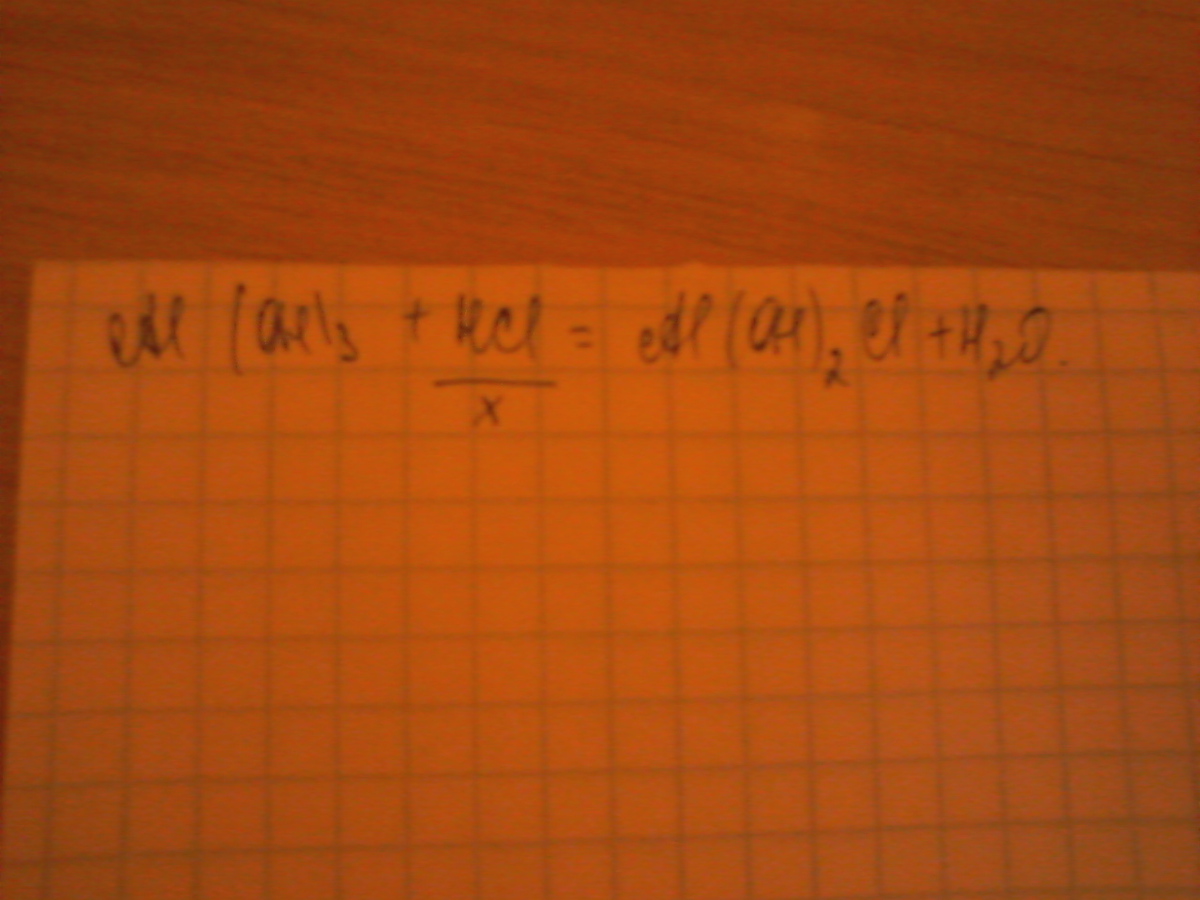 Al (OH)₃ + HCl = Al(OH)₂Cl + H₂O.
x